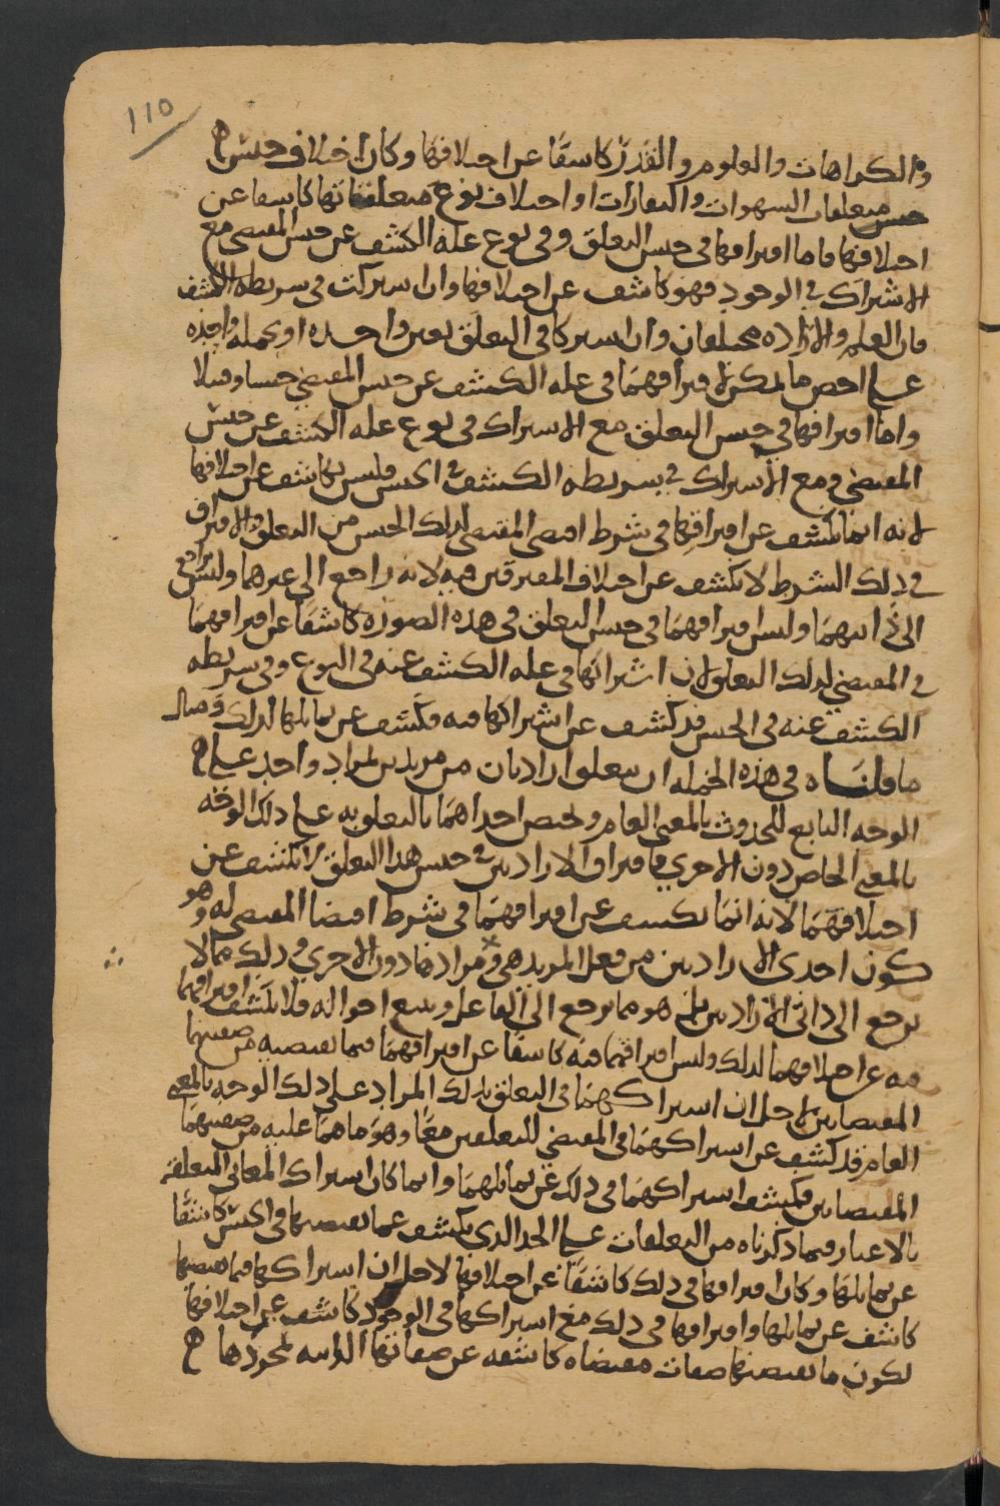 ١١٥
والكراهات والعلوم والقدر كاشفا عن اختلافها وكان اختلاف جنس
جنس متعلقات الشهوات والنفارات او اختلاف نوع متعلقاتها كاشفا عن
اختلافها فاما افتراقها في جنس التعلق وفي نوع علة الكشف عن جنس المقتضي مع
الاشتراك في الوجود فهو كاشف عن اختلافها وان اشتركت في شريطة الكشف
فان العلم والارادة مختلفان وان اشتركا في التعلق بعين واحدة او بجملة واحدة
على اخص ما يمكن لافتراقهما في علة الكشف عن جنس المقتضي جنسا وقبيلا
واما افتراقها في جنس التعلق مع الاشتراك في نوع علة الكشف عن جنس
المقتضي ومع الاشتراك في شريطة الكشف في الجنس فليس بكاشف عن اختلافها
لانه انما يكشف عن افتراقها في شرط اقتضى المقتضي لذلك الجنس من التعلق والافتراق
في ذلك الشرط لا يكشف عن اختلاف المفترقين فيه لانه راجع الى غيرهما وليس براجع
الى ذاتيهما وليس افتراقهما في جنس التعلق في هذه الصورة كاشفا عن افتراقهما
في المقتضي لذلك التعلق لان اشتراكها في علة الكشف عنه في النوع وفي شريطة
الكشف عنه في الجنس قد كشف عن اشتراكها فيه فكشف عن تماثلها لذلك ومثال
ما قلناه في هذه الجملة ان يتعلق ارادتان من مريدين لمراد واحد على
الوجه التابع للحدوث بالمعنى العام ويختص احداهما بالتعلق به على ذلك الوجه
بالمعنى الخاص دون الاخرى فافتراق الارادتين في جنس هذا التعلق لا يكشف عن
اختلافهما لانه انما يكشف عن افتراقهما في شرط اقتضا المقتضي له وهو
كون احدى الارادتين من فعل المريد هي ومرادها دون الاخرى وذلك مما لا
يرجع الى ذاتي الارادتين بل هو مما يرجع الى الفاعل ويتبع احواله فلا يكشف افتراقهما
فيه عن اختلافهما لذلك وليس افتراقهما فيه كاشفا عن افتراقهما فيما يقتضيه من صفتيهما
المقتضاتين لاجل ان اشتراكهما في التعلق بذلك المراد على ذلك الوجه بالمعنى
العام قد كشف عن اشتراكهما في المقتضي للتعلقين معا وهو ما هما عليه من صفتيهما
المقتضاتين فكشف اشتراكهما في ذلك عن تماثلهما وانما كان اشتراك المعاني المتعلقة
بالاغيار فيما ذكرناه من التعلقات على الحد الذي يكشف عما يقتضيها في الجنس كاشفا
عن تماثلها وكان افتراقها في ذلك كاشفا عن اختلافها لاجل ان اشتراكها فيما يقتضيها
كاشف عن تماثلها وافتراقها في ذلك مع اشتراكها في الوجود كاشف عن اختلافها
لكون ما يقتضيها صفات مقتضاة كاشفة عن صفاتها الذاتية لمجردها